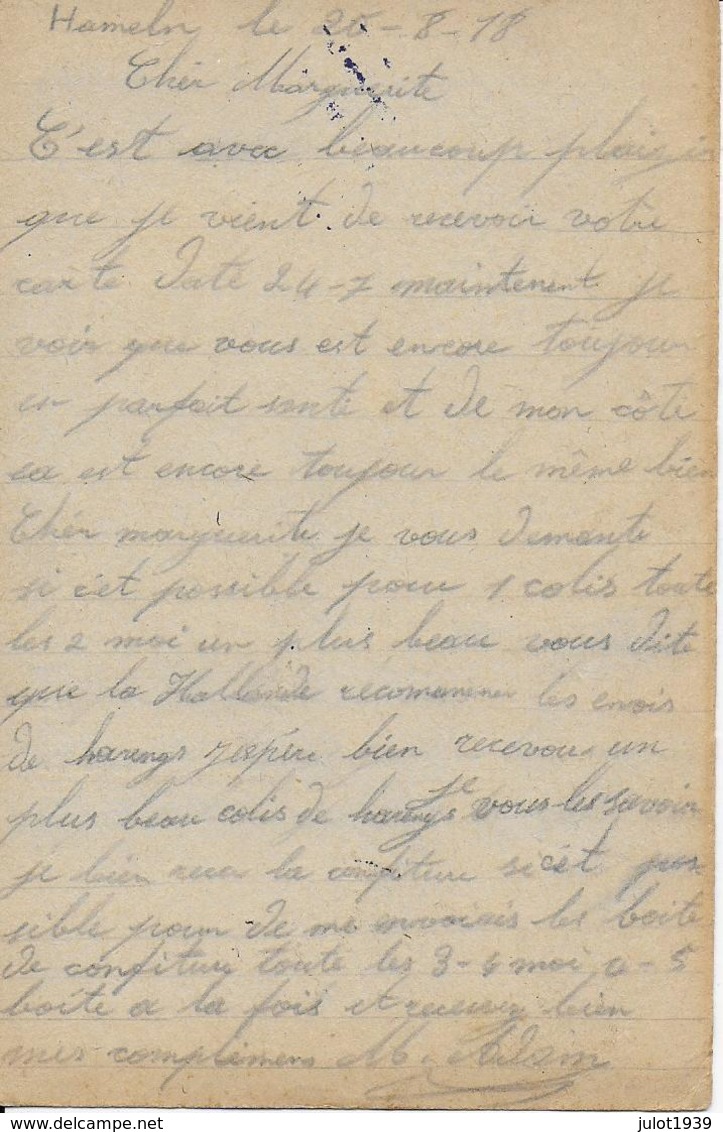 Hameln le 26-8-18
Chèr Marguerite
C'est avec beaucoup plaizir
que je vient de recevoir votre
carte daté 24-7 maintenent je
voir que vous est encore toujour
en parfait santé et de mon côté
ca est encore toujour le même bien
Chèr marguerite je vous demante
si c'ét possible pour 1 colis toute
les 2 moi un plus beau vous dite
que la Hollande les envois
de harengs j'espère bien recevoir un
plus beau colis de harengs je vous les savoir
je bien recu la confiture si c'ét pos
sible pour de me envoiais les boite
de confiture toute les 3-4 moi a-5
boîte a la fois et recevez bien
mes complimens M. Adam
julot1939